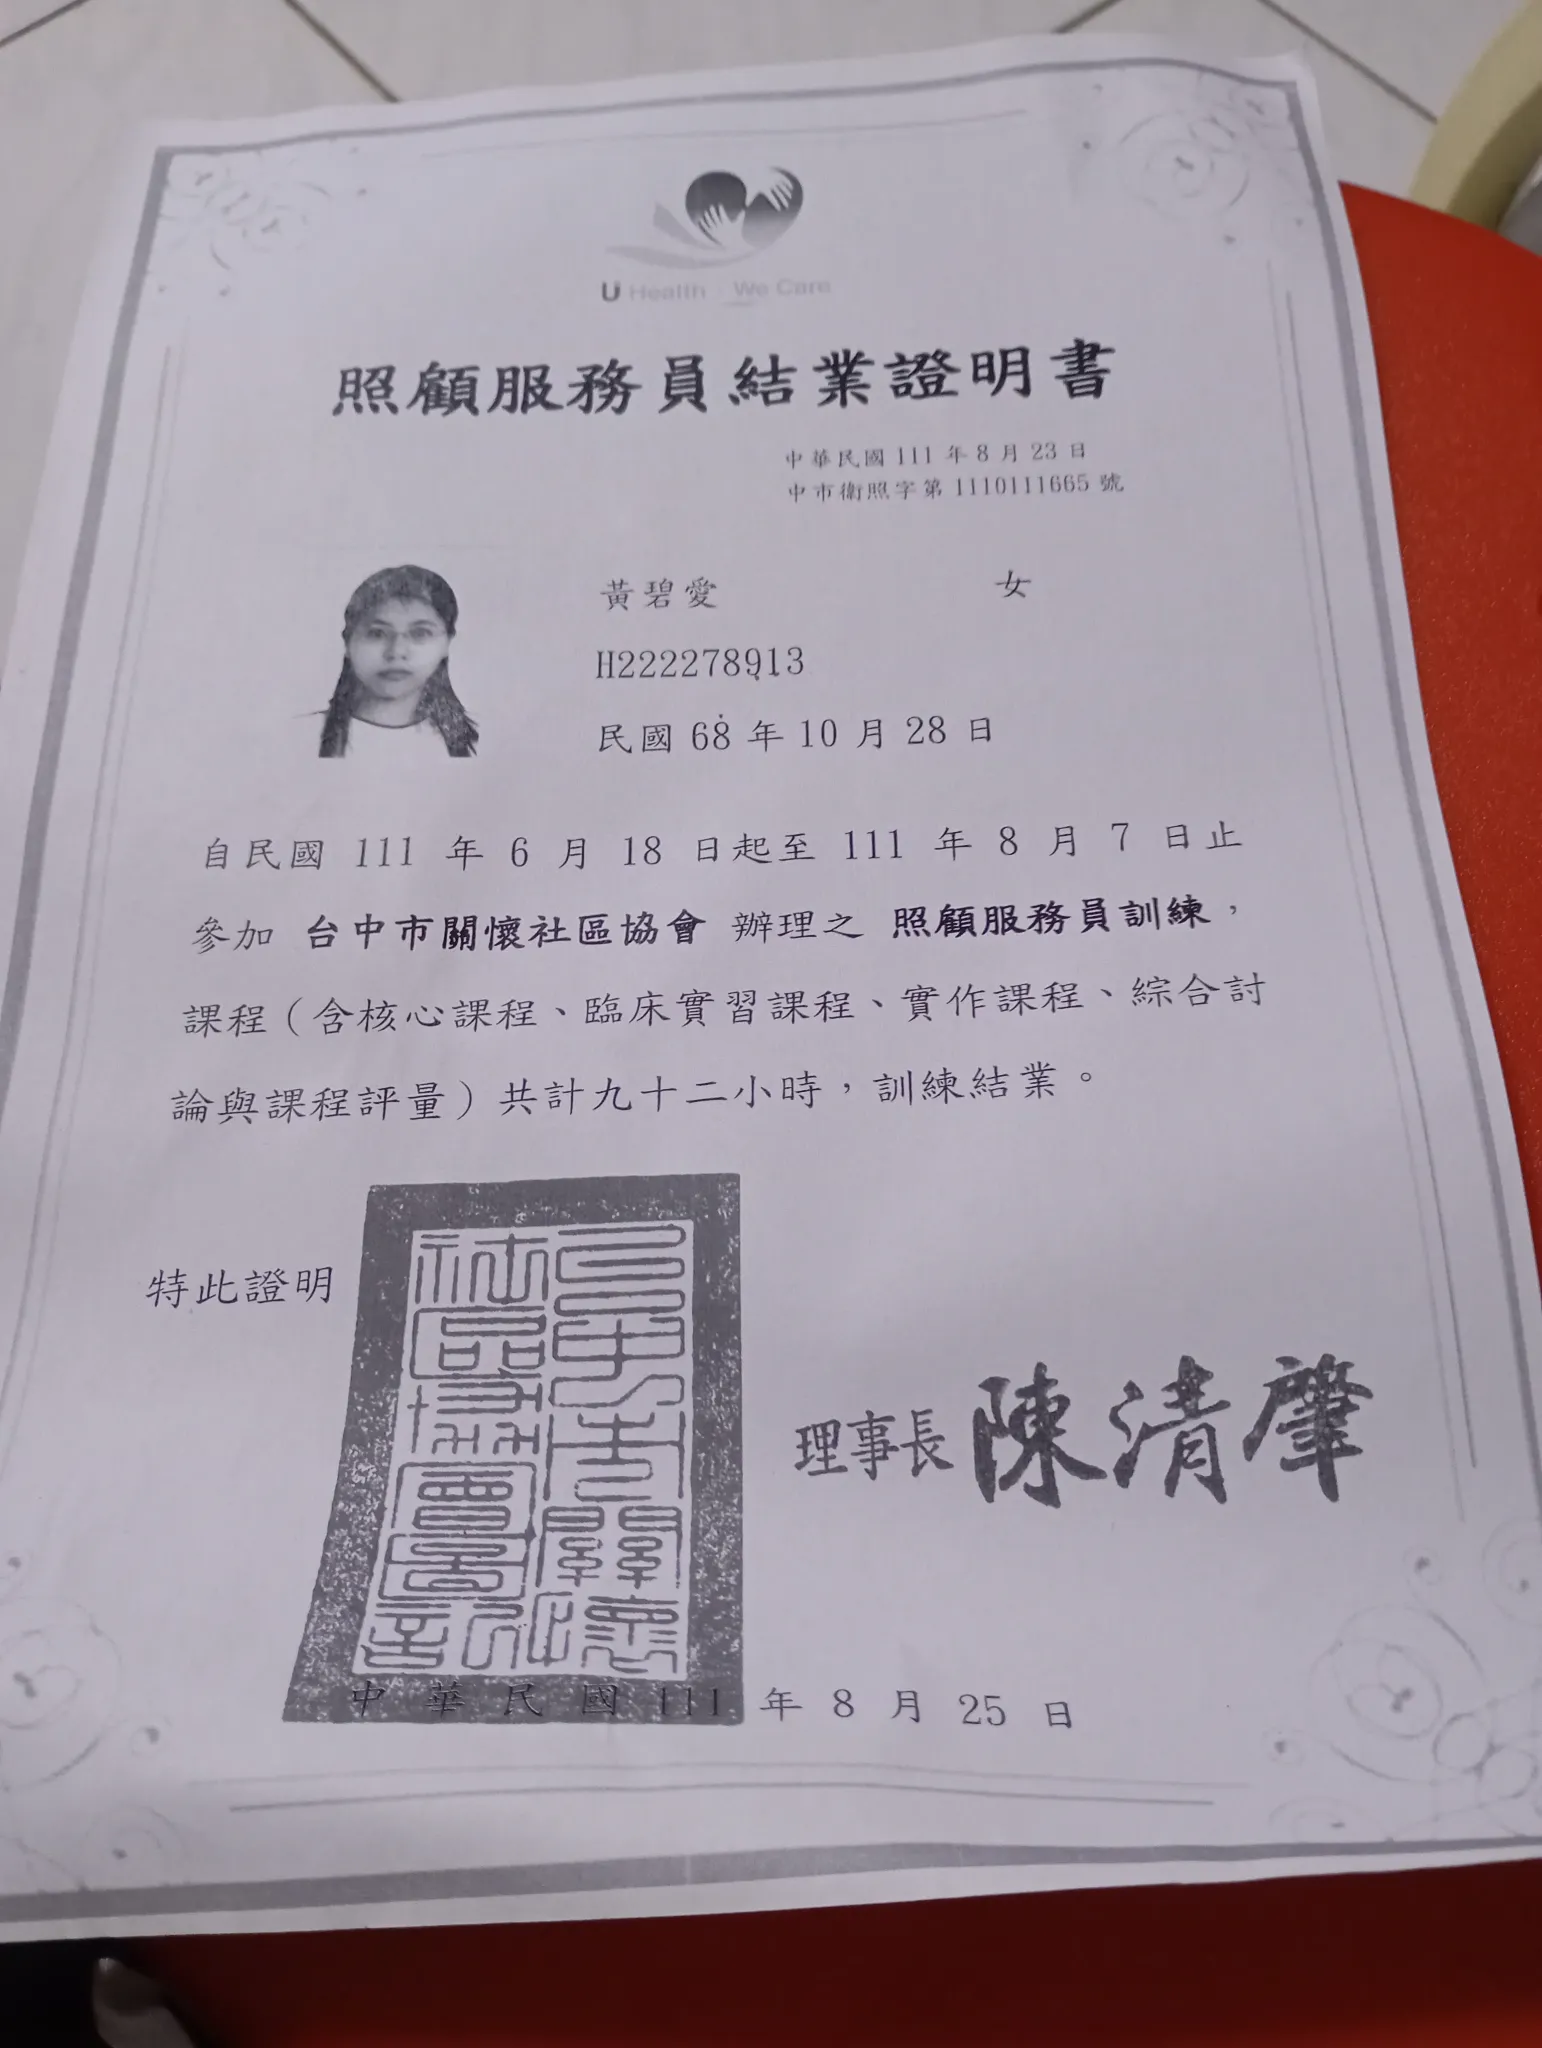 U Health We Care
照顧服務員結業證明書
中華民國 111 年 8 月 23 日
中市衛照字第 1110111665 號
黃碧愛 女
H222278913
民國 68 年 10 月 28 日
自民國 111 年 6 月 18 日起至 111 年 8 月 7 日止
參加 台中市關懷社區協會 辦理之 照顧服務員訓練,
課程（含核心課程、臨床實習課程、實作課程、綜合討
論與課程評量）共計九十二小時，訓練結業。
特此證明
理事長 陳清肇
中華民國 111 年 8 月 25 日